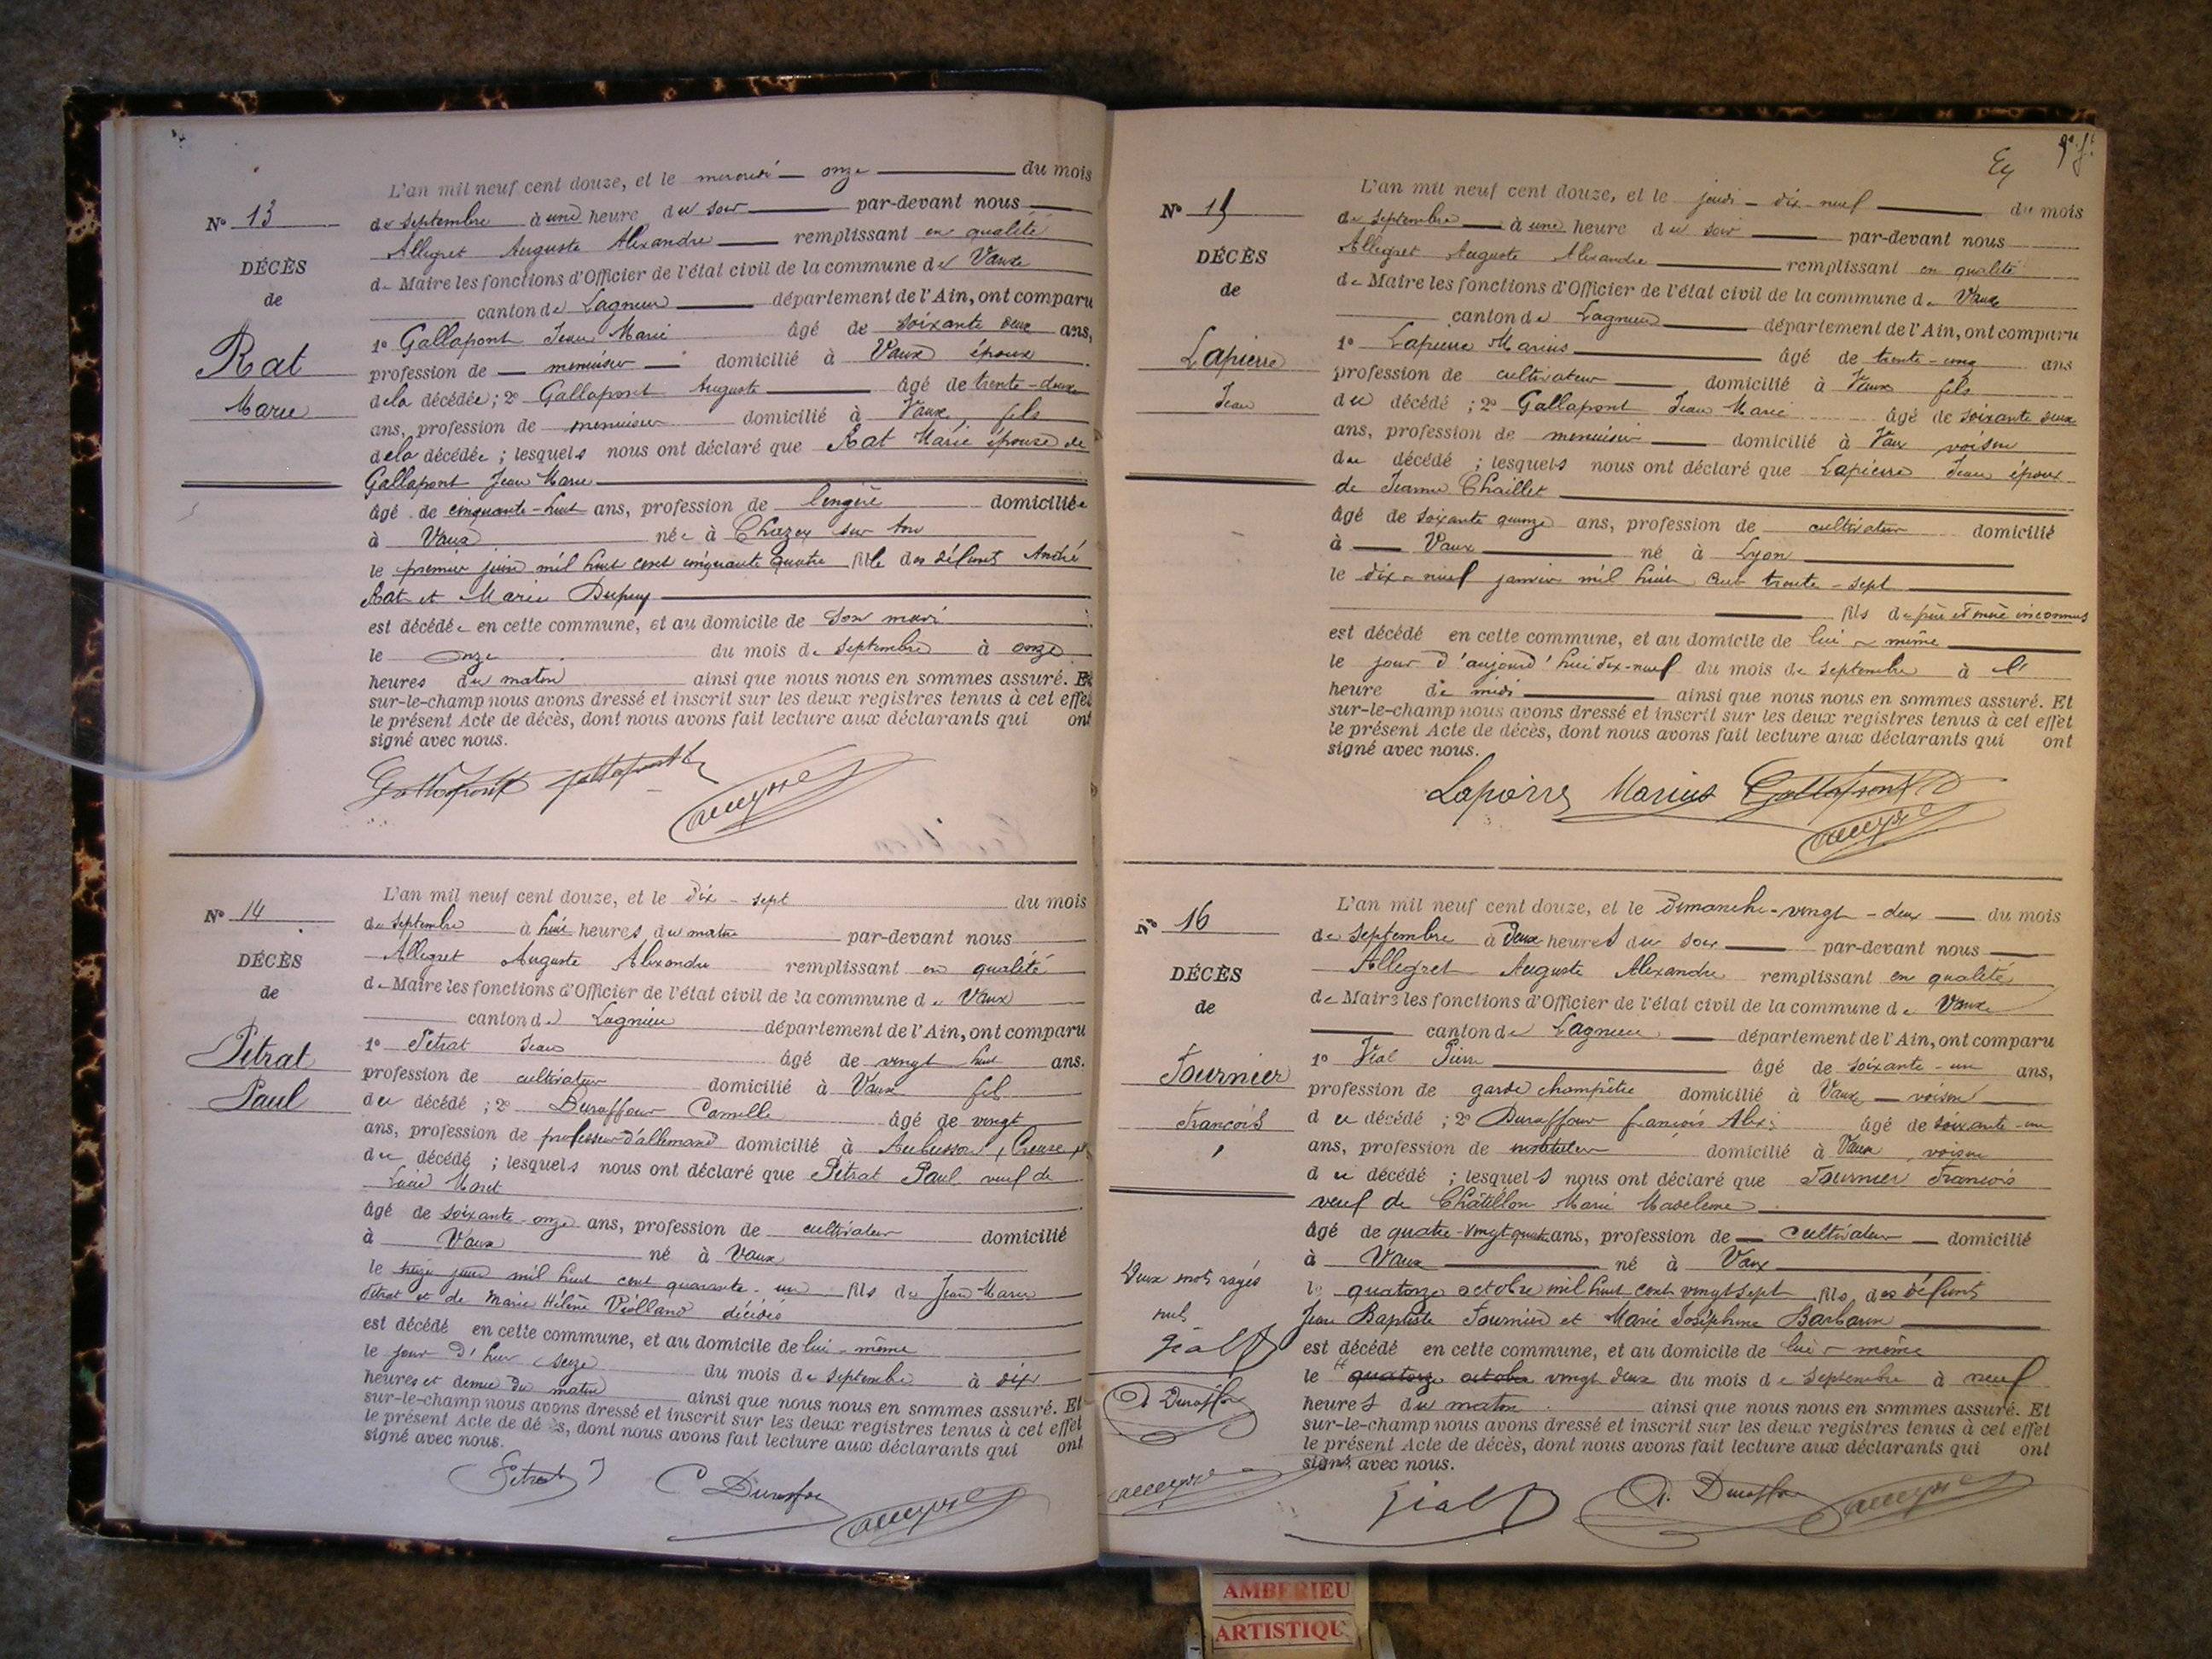 N° 13
DÉCÈS
de
Rat
Marie
L'an mil neuf cent douze, et le mercredi — onze du mois
de septembre à une heure du soir par-devant nous
Allegret Auguste Alexandre remplissant en qualité
de Maire les fonctions d'Officier de l'état civil de la commune de Vaux
canton de Lagnieu département de l'Ain, ont comparu
1° Gallapont Jean Marie âgé de soixante deux ans,
profession de — menuisier — domicilié à Vaux époux
de la décédée; 2° Gallapont Auguste âgé de trente-deux
ans, profession de menuisier domicilié à Vaux, fils
de la décédée; lesquels nous ont déclaré que Rat Marie épouse de
Gallapont Jean Marie
âgé de cinquante-huit ans, profession de lingère domiciliée
à Vaux née à Chazey sur
le premier juin mil huit cent cinquante quatre fille des défunts André
Rat et Marie Dupuy
est décédée en cette commune, et au domicile de son mari
le onze du mois de septembre à onze
heures du matin ainsi que nous nous en sommes assuré. Et
sur-le-champ nous avons dressé et inscrit sur les deux registres tenus à cet effet
le présent Acte de décès, dont nous avons fait lecture aux déclarants qui ont
signé avec nous.
Gallapont Gallapont
N° 14
DÉCÈS
de
Pétrat
Paul
L'an mil neuf cent douze, et le dix-sept du mois
de septembre à huit heures du matin par-devant nous
Allegret Auguste Alexandre remplissant en qualité
de Maire les fonctions d'Officier de l'état civil de la commune de Vaux
canton de Lagnieu département de l'Ain, ont comparu
1° Pétrat Jean âgé de vingt huit ans.
profession de cultivateur domicilié à Vaux fils
du décédé; 2° Duraffour Camille âgé de vingt
ans, profession de professeur d'allemand domicilié à Aubusson, Creuse
du décédé; lesquels nous ont déclaré que Pétrat Paul veuf de
Moret
âgé de soixante-onze ans, profession de cultivateur domicilié
à Vaux né à Vaux
le mil huit cent quarante-un fils de Jean Marie
Pétrat et de Marie Hélène Piolland décédés
est décédé en cette commune, et au domicile de lui-même
le jour d'hier seize du mois de septembre à dix
heures et demie du matin ainsi que nous nous en sommes assuré. Et
sur-le-champ nous avons dressé et inscrit sur les deux registres tenus à cet effet
le présent Acte de dé s, dont nous avons fait lecture aux déclarants qui ont
signé avec nous.
Pétrat J C Duraffour
N° 15
DÉCÈS
de
Lapierre
Jean
L'an mil neuf cent douze, et le jeudi — dix-neuf du mois
de septembre à une heure du soir par-devant nous
Allegret Auguste Alexandre remplissant en qualité
de Maire les fonctions d'Officier de l'état civil de la commune de Vaux
canton de Lagnieu département de l'Ain, ont comparu
1° Lapierre Marius âgé de trente-cinq ans
profession de cultivateur domicilié à Vaux fils
du décédé; 2° Gallapont Jean Marie âgé de soixante deux
ans, profession de menuisier domicilié à Vaux voisin
du décédé; lesquels nous ont déclaré que Lapierre Jean époux
de Jeanne Chaillet
âgé de soixante quinze ans, profession de cultivateur domicilié
à — Vaux né à Lyon
le dix-neuf janvier mil huit cent trente-sept
fils de père et mère inconnus
est décédé en cette commune, et au domicile de lui-même
le jour d'aujourd'hui dix-neuf du mois de septembre à l'
heure de midi ainsi que nous nous en sommes assuré. Et
sur-le-champ nous avons dressé et inscrit sur les deux registres tenus à cet effet
le présent Acte de décès, dont nous avons fait lecture aux déclarants qui ont
signé avec nous.
Lapierre Marius Gallapont
N° 16
DÉCÈS
de
Fournier
François
L'an mil neuf cent douze, et le Dimanche-vingt-deux du mois
de septembre à deux heures du soir par-devant nous
Allegret Auguste Alexandre remplissant en qualité
de Maire les fonctions d'Officier de l'état civil de la commune de Vaux
canton de Lagnieu département de l'Ain, ont comparu
1° Vial Pierre âgé de soixante-un ans,
profession de garde champêtre domicilié à Vaux — voisin
du décédé; 2° Duraffour françois Alexis âgé de soixante-un
ans, profession de instituteur domicilié à Vaux, voisin
du décédé; lesquels nous ont déclaré que Fournier François
veuf de Châtillon Marie Madeleine
âgé de quatre-vingt quatre ans, profession de — cultivateur — domicilié
à Vaux né à Vaux
le quatorze octobre mil huit cent vingt sept fils des défunts
Jean Baptiste Fournier et Marie Joséphine Barbarin
est décédé en cette commune, et au domicile de lui-même
le quatorze octobre vingt deux du mois de septembre à neuf
heures du matin ainsi que nous nous en sommes assuré. Et
sur-le-champ nous avons dressé et inscrit sur les deux registres tenus à cet effet
le présent Acte de décès, dont nous avons fait lecture aux déclarants qui ont
signé avec nous.
Deux mots rayés
nuls
Vial P
A Duraffour
Vial P A. Duraffour
AMBERIEU
ARTISTIQU